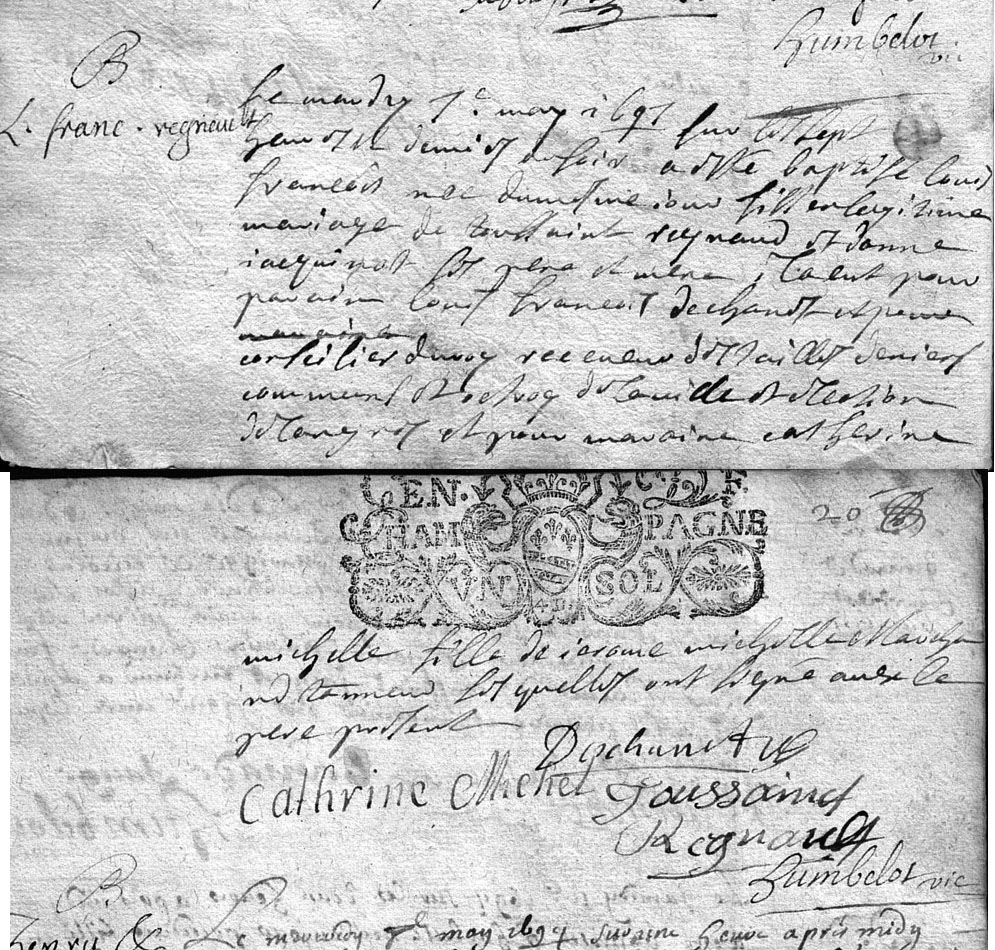 Humbelot
vic
B
L. franc. regnault
Le mardy 7e may 1697 sur les sept
heures et demi et du soir a esté baptisé Louis
francois nee du mesme iour fils en legitime
mariage de toussaint regnaud et danne
iacquinot ses pere et mere, Laeut pour
parain Louis francois dechanet et pour
maraine
conseilier du roy receveur des tailles deniers
communs et octroy de la ville et election
de Langres et pour maraine catherine
EN
CHAMPAGNE
UN SOL
4 D
20
michelle fille de ierome michelle
tanneur lesquelles ont signé avec le
pere present
Dechanet
Cathrine Michel
Toussainct
Regnault
Humbelot vic
B
henry
Le mercredy may 1697 heure apres midy